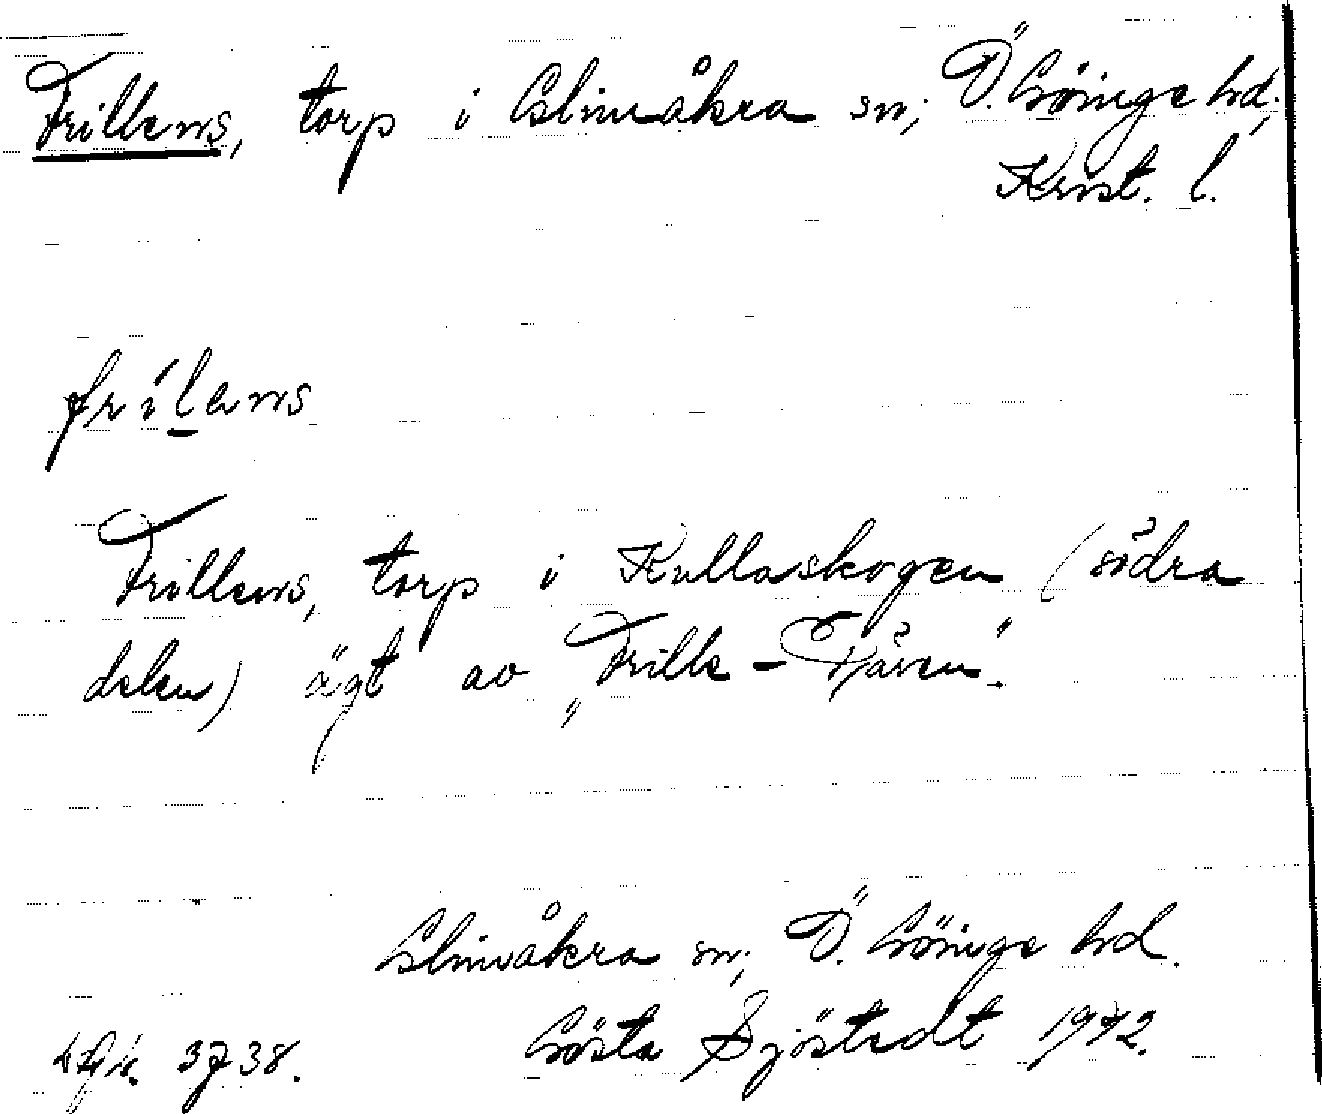 Frillens, torp i Glimåkra sn; Ö. Göinge hd;
Krist. l.
frilens
Frillens, torp i Kullaskogen (södra
delen) ägt av "Frille-Tjåven".
Glimåkra sn; Ö. Göinge hd.
Gösta Sjöstedt 1972.
3738.